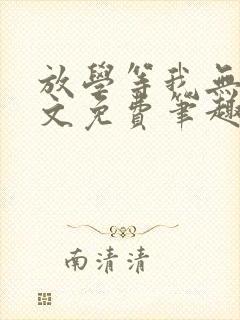 放學等我無
文免費筆趣
南清清